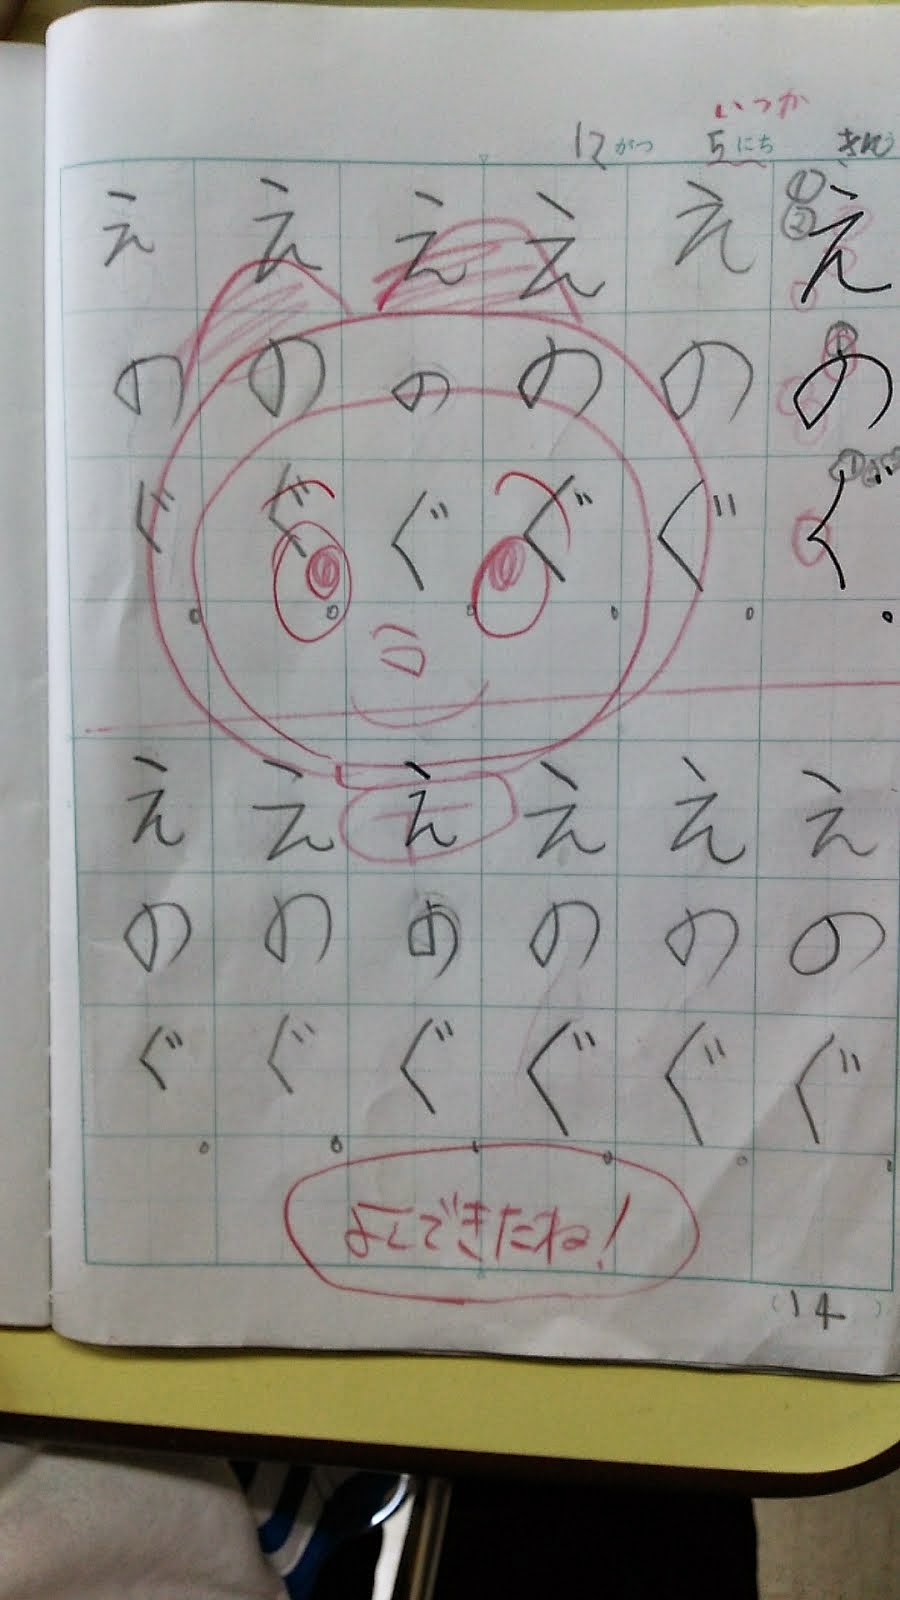 いつか
12がつ 5にち きん
えのぐ。えのぐ。
えのぐ。えのぐ。
えのぐ。えのぐ。
えのぐ。えのぐ。
えのぐ。えのぐ。
えのぐ。えのぐ。
よくできたね!
(14)